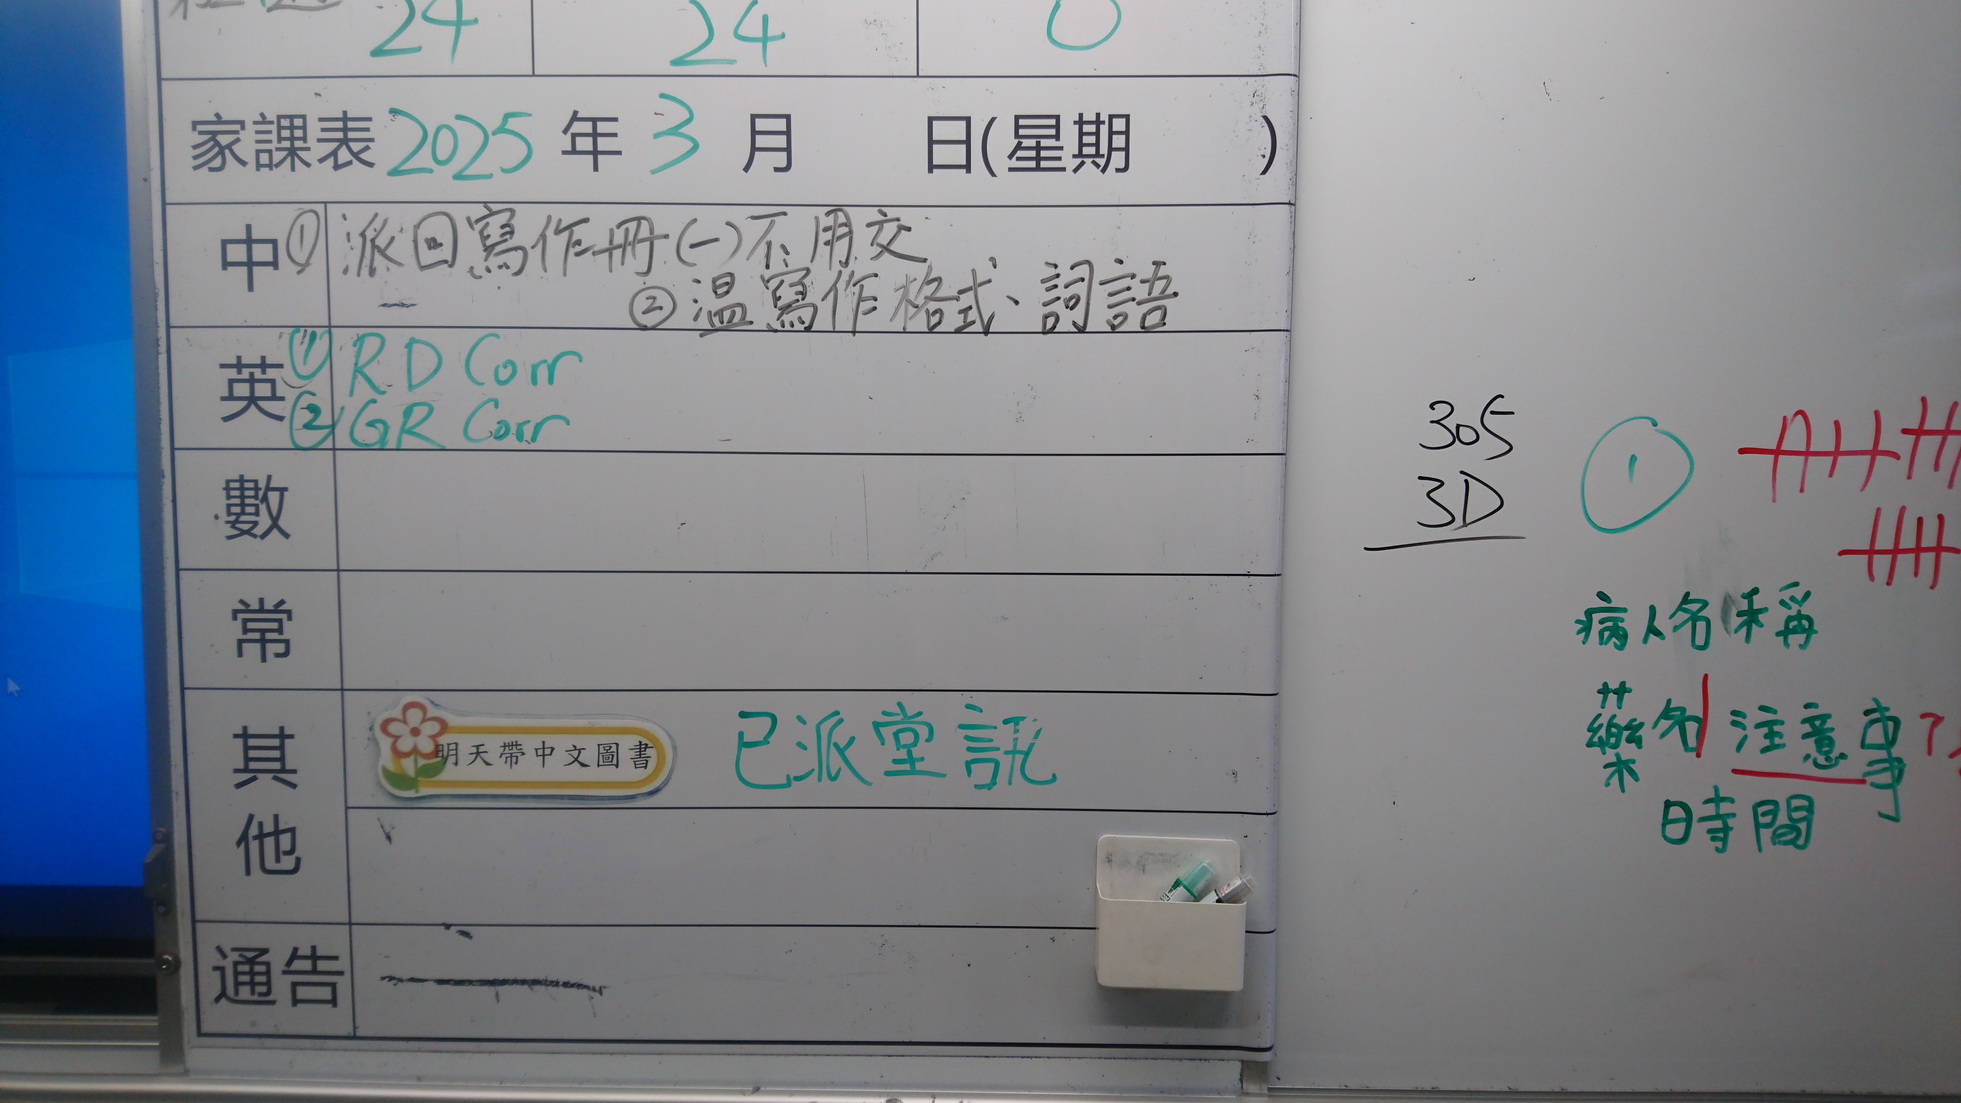 24 24 0
家課表 2025 年 3 月 日(星期 )
中 ① 派回寫作冊(一)不用交
② 温寫作格式、詞語
英 ① RD Corr
② GR Corr
數
常
其他
明天帶中文圖書 已派堂訊
通告
305
3D
1
病人名稱
藥名 注意事
時間